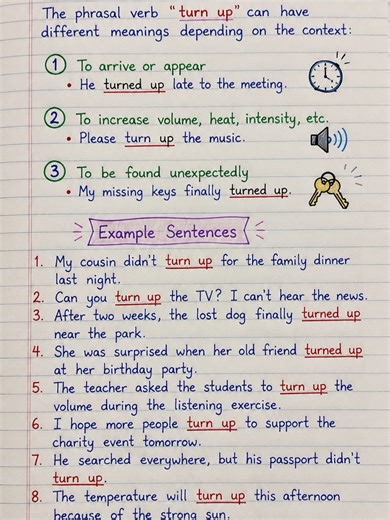 The phrasal verb "turn up" can have
different meanings depending on the context:
1 To arrive or appear
• He turned up late to the meeting.
2 To increase volume, heat, intensity, etc.
• Please turn up the music.
3 To be found unexpectedly
• My missing keys finally turned up.
Example Sentences
1. My cousin didn't turn up for the family dinner
last night.
2. Can you turn up the TV? I can't hear the news.
3. After two weeks, the lost dog finally turned up
near the park.
4. She was surprised when her old friend turned up
at her birthday party.
5. The teacher asked the students to turn up the
volume during the listening exercise.
6. I hope more people turn up to support the
charity event tomorrow.
7. He searched everywhere, but his passport didn't
turn up.
8. The temperature will turn up this afternoon
because of the strong sun.